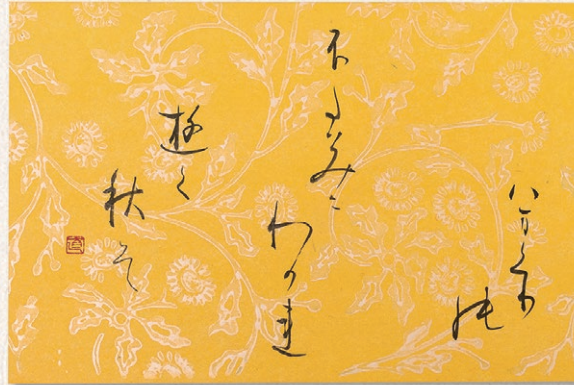 はまくり
の
ふたみに
わかれ
遊く
秋そ